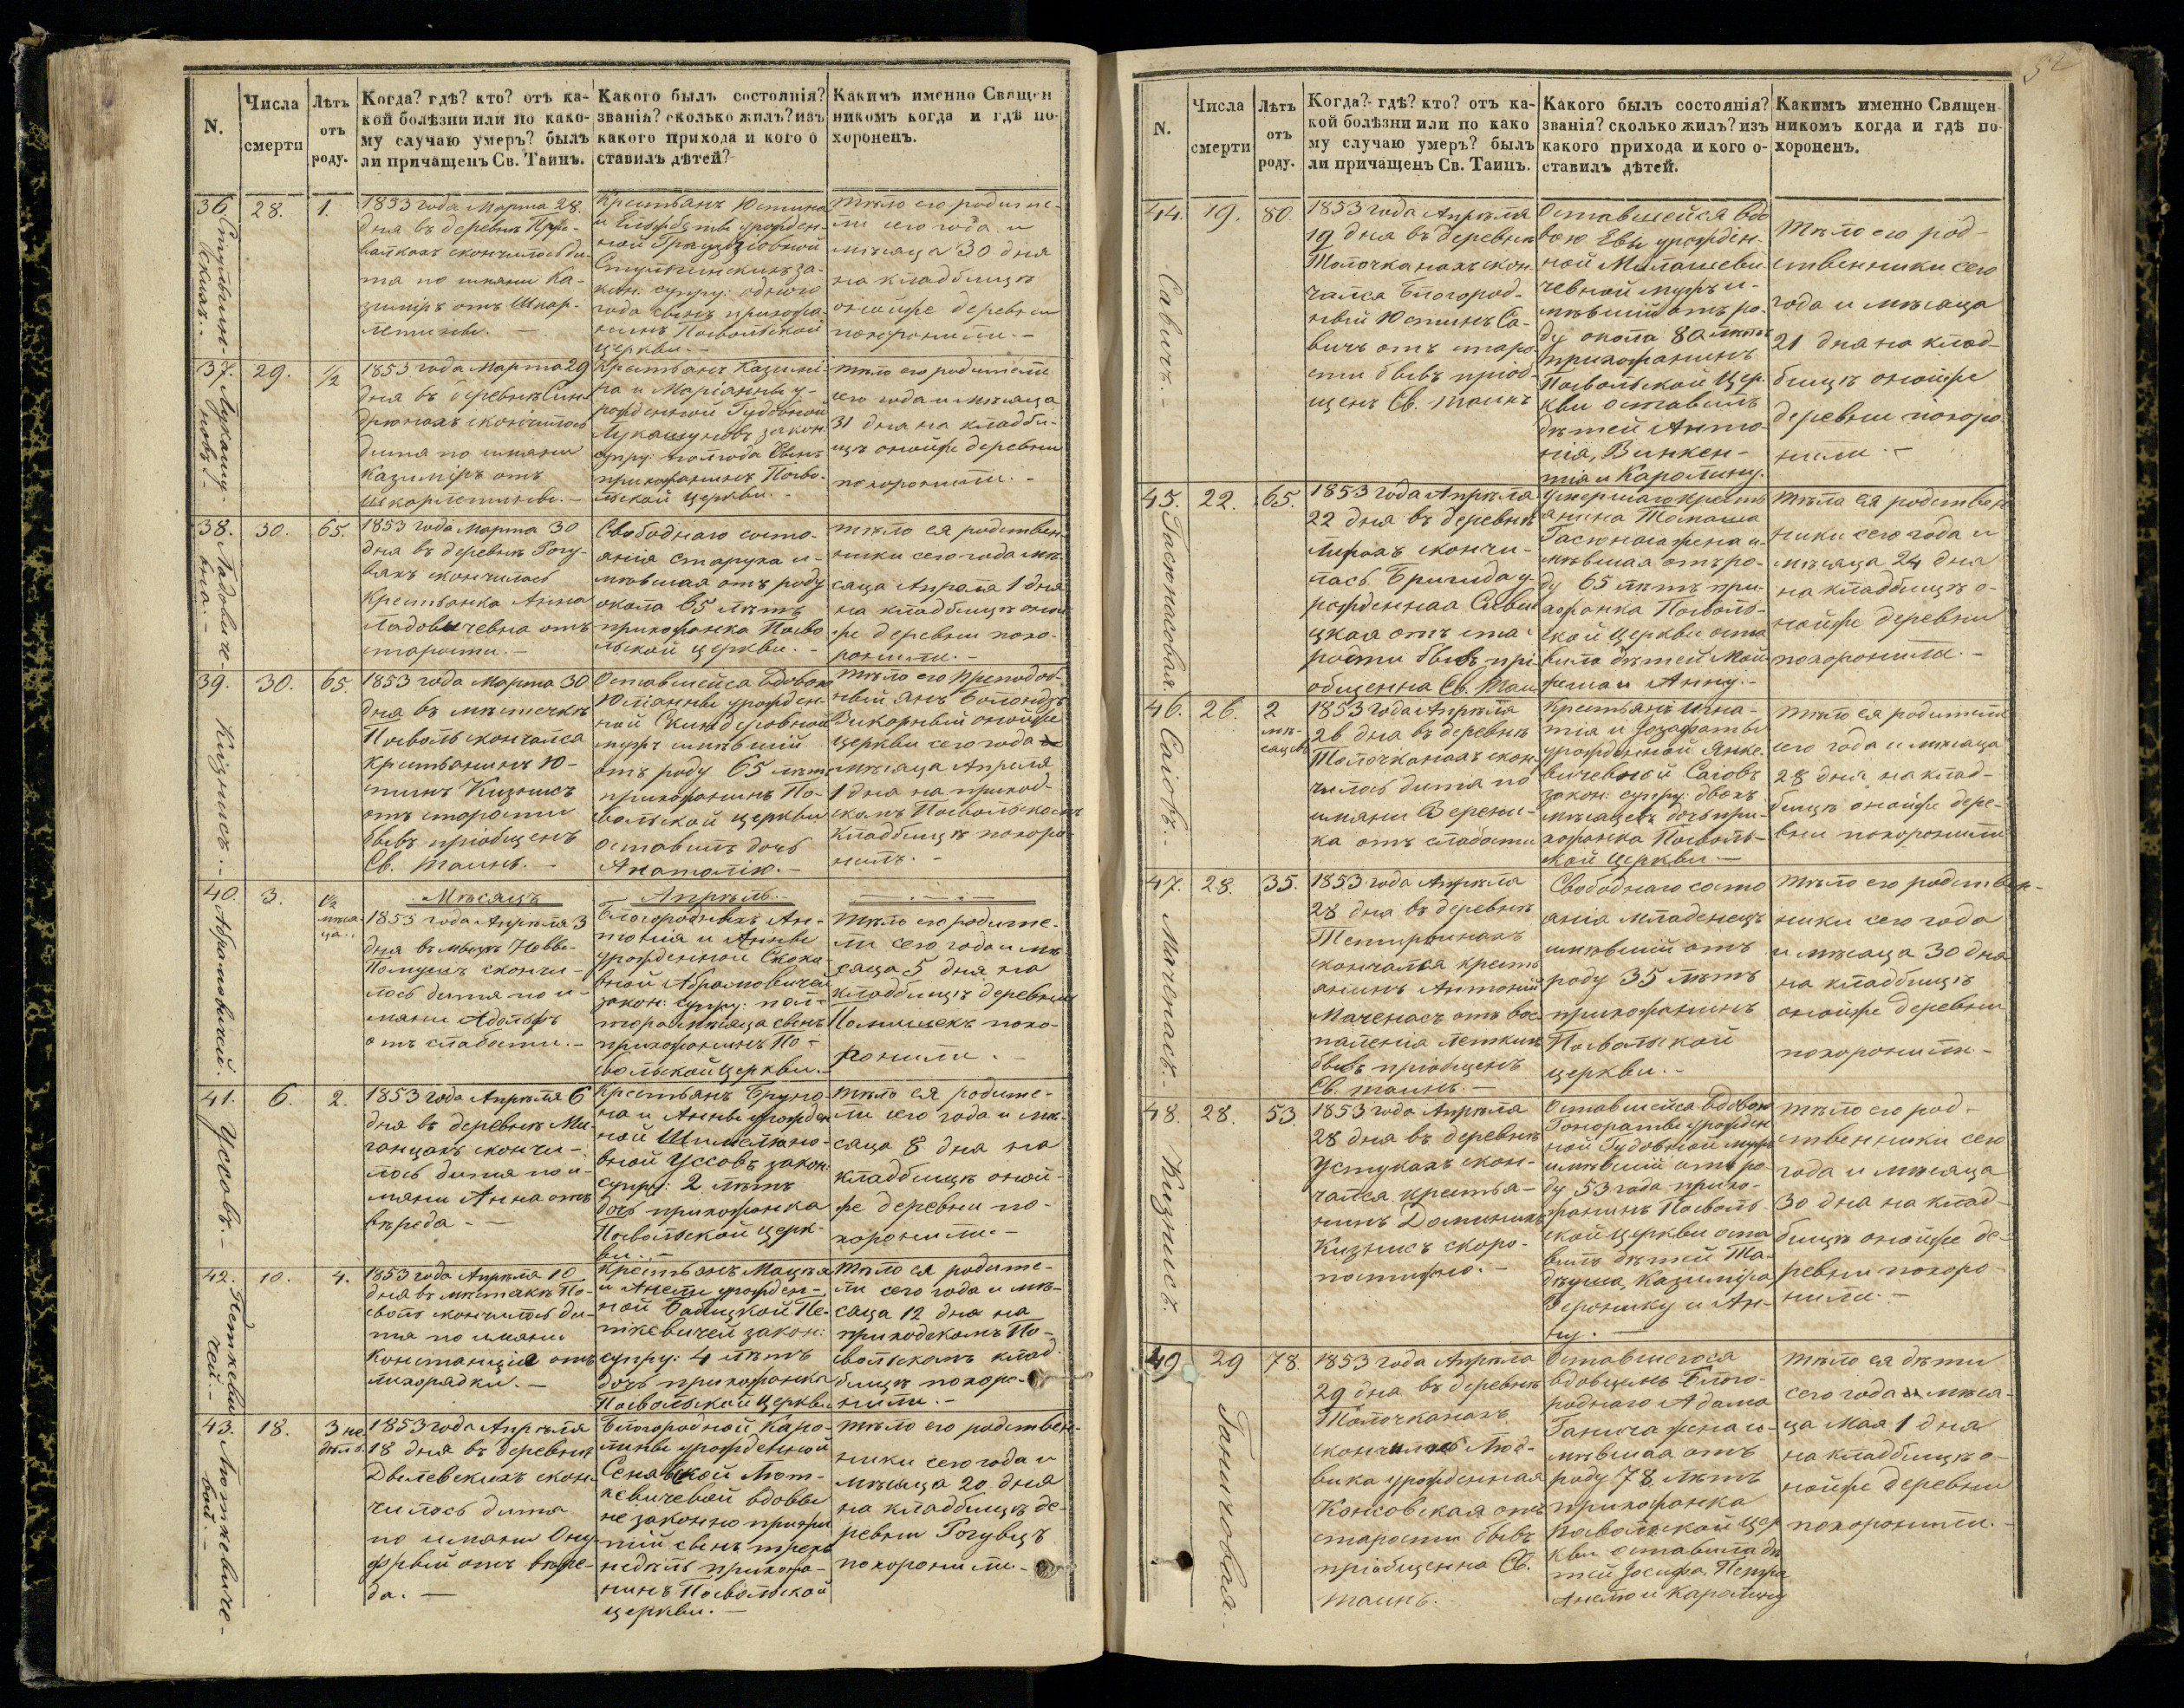 N.
Числа
смерти
Лѣтъ
отъ
роду.
Когда? гдѣ? кто? отъ ка-
кой болѣзни или по како-
му случаю умеръ? былъ
ли причащенъ Св. Таинъ.
Какого былъ состоянія?
званія? сколько жилъ? изъ
какого прихода и кого о
ставилъ дѣтей?
Какимъ именно Священ
никомъ когда и гдѣ по-
хороненъ.
36.
28.
1.
1853 года Марта 28.
дня въ деревнѣ
скончилось ди-
та по имяни Ка-
зиміръ отъ Шкар-
летины.
Крестьянъ Юстина
и Елжбеты урожден-
ной
зa-
кон: супру: одного
года сынъ прихожа-
нинъ Посвольской
церкви.-
тѣло его родите-
ли сего года и
мѣсяца 30 дня
на кладбищѣ
онойже деревни
похоронили.-
37.
Лукашу-
новъ.-
29.
1/2
1853 года Марта 29
дня въ деревнѣ
скончилось
дита по имяни
Казиміръ отъ
шкарлетины.-
Крестьянъ Казими-
ра и Маріанны у-
рожденной Гудовной
Лукашуновъ закон:
супру: полгода сынъ
прихожанинъ Посво-
льской церкви.-
тѣло его родители
сего года и мѣсяца
31 дня на кладби-
щѣ онойже деревни
похоронили.-
38.
Ладовиче-
вна.-
30.
65.
1853 года Марта 30
дня въ деревнѣ Рогу-
вяхъ скончилась
Крестьянка Анна
Ладовичевна отъ
старости.-
Свободнаго состо-
янія старуха и-
мѣвшая отъ роду
окола 65 лѣтъ
прихожанка Посво
льской церкви.-
тѣло ея родствен-
ники сего года мѣ-
сяца Апрѣля 1 дня
на кладбищѣ оной
же деревни похо-
ронили.-
39.
Кизнисъ.-
30.
65.
1853 года Марта 30
дня въ мѣстечкѣ
Посволь скончался
Крестьянинъ Ю-
стинъ Кизнисъ
отъ старости
бывъ пріобщенъ
Св. таинъ.-
Оставшейся вдовою
Юліанны урожден-
ной Скиндеровной
мужъ имѣвшій
отъ роду 65 лѣтъ
прихожанинъ По-
свольской церкви
оставилъ дочь
Анатолію.-
тѣло его преподоб-
ный Янъ
Викарный онойже
церкви сего года
мѣсяца Апреля
1 дня на приход-
скомъ Посвольскомъ
кладбищѣ похоро-
нилъ.-
Мѣсяцъ
Апрѣль.
40.
Абрамовичей.
3.
1/2
мѣся-
ца..
1853 года Апрѣля 3
дня въ мызѣ Новы-
скончи-
лось дитя по и-
мяни Адольфъ
отъ слабости.-
Благородныхъ Ан-
тонія и Анны
урожденной Скоки-
вной Абрамовичей
закон: супру: пол-
тора мѣсяца сынъ
прихожанинъ По-
свольской церкви.-
тѣло его родите-
ли сего года и мѣ-
сяца 5 дня на
кладбищѣ деревни
похо-
ронили.-
41.
Уссовъ.-
6.
2.
1853 года Апрѣля 6
дня въ деревнѣ Ми-
ганцахъ скончи-
лось дитя по и-
мяни Анна отъ
вѣреда.-
Крестьянъ Бруно-
на и Анны урожден
ной
вной Уссовъ закон:
супру: 2 лѣтъ
дочь прихожанка
Посвольской церк-
ви.-
тѣло ея родите-
ли сего года и мѣ-
сяца 8 дня на
кладбищѣ оной-
же деревни по-
хоронили.-
42.
Петкеви
чей.-
10.
4.
1853 года Апрѣля 10
дня въ мѣстечкѣ По-
сволѣ скончилось ди-
тя по имяни
Констанція отъ
лихорадки.-
Крестьянъ Мацѣя
и Анели урожден-
ной Бабицкой Пе-
ткевичей закон:
супру: 4 лѣтъ
дочь прихожанка
Посвольской церкви
тѣло ея родите-
ли сего года и мѣ-
сяца 12 дня на
приходскомъ По-
свольскомъ клад-
бищѣ похоро-
нили.-
43.
Люткевиче-
вой.-
18.
3 не
дѣль.
1853 года Апрѣля
18 дня въ деревнѣ
Двилевскихъ скон-
чилось дита
по имяни Ону-
фрый отъ вере-
да.-
Благородной Каро-
лины урожденной
Лют-
кевичевой вдовы
не законно прижи
тій сынъ трехъ
недѣль прихожа-
нинъ Посвольской
церкви.-
тѣло его родствен-
ники сего года и
мѣсяца 20 дня
на кладбищѣ де-
ревни Рогувцъ
похоронили.-
52
N.
Числа
смерти
Лѣтъ
отъ
роду.
Когда? гдѣ? кто? отъ ка-
кой болѣзни или по како
му случаю умеръ? былъ
ли причащенъ Св. Таинъ.
Какого былъ состоянія?
званія? сколько жилъ? изъ
какого прихода и кого о-
ставилъ дѣтей.
Какимъ именно Священ-
никомъ когда и гдѣ по-
хороненъ.
44.
Савичъ.-
19.
80.
1853 года Апрѣля
19 дня въ деревнѣ
Толочканахъ скон-
чался Благород-
ный Юстинъ Са-
вичъ отъ старо-
сти бывъ пріоб-
щенъ Св. таинъ
Оставшейся вдо
вою Евы урожден-
ной Милашеви-
чевной мужъ и-
мѣвшій отъ ро-
ду окола 80 лѣтъ
прихожанинъ
Посвольской Цер-
кви оставилъ
дѣтей Анто-
нія, Винкен-
тія и Каролину.
тѣло его род-
ственники сего
года и мѣсяца
21 дня на клад-
бищѣ онойже
деревни похоро
нили.-
45.
Гасюнасовая.
22.
65.
1853 года Апрѣля
22 дня въ деревнѣ
скончи-
лась Бригида у-
рожденная
цкая отъ ста-
рости бывъ прі-
общенна Св. Таин
Умершаго кресть
янина Томаша
Гасюнаса жена и-
мѣвшая отъ ро-
ду 65 лѣтъ при-
хожанка Посволь-
ской Церкви оста
вила дѣтей
и Анну.-
тѣло ея родствен
ники сего года и
мѣсяца 24 дня
на кладбищѣ о-
нойже деревни
похоронили.-
46.
Саювъ.-
26.
2
мѣ-
сяцевъ
1853 года Апрѣля
26 дня въ деревнѣ
Толочканахъ скон-
чилось дита по
имяни Верени-
ка отъ слабости
Крестьянъ Игна-
тія и Іозафаты
урожденной Янке-
вичевной Саіовъ
закон: супру: двохъ
мѣсяцевъ дочь при-
хожанка Посволь-
ской Церкви.-
тѣло ея родители
сего года и мѣсяца
28 дня на клад-
бищѣ онойже дере-
вни похоронили
47.
Маченасъ.-
28.
35.
1853 года Апрѣля
28 дня въ деревнѣ
скончался кресть
янинъ Антоній
Маченасъ отъ вос-
паленія легкихъ
бывъ пріобщенъ
Св. таинъ.-
Свободнаго состо
янія младенецъ
имѣвшій отъ
роду 35 лѣтъ
прихожанинъ
Посвольской
церкви.-
тѣло его родствен-
ники сего года
и мѣсяца 30 дня
на кладбищѣ
онойже деревни
похоронили-
48.
Кизнисъ.
28.
53.
1853 года Апрѣля
28 дня въ деревнѣ
Устукахъ скон-
чался крестья-
нинъ Доминикъ
Кизнисъ скоро-
постижно.-
Оставшейся вдовою
Гонораты урожден
ной Гудовной мужъ
имѣвшій отъ ро-
ду 53 года прихо-
жанинъ Посволь-
ской церкви оста
вилъ дѣтей Та-
деуша, Казиміра
Веронику и Ан-
ну.-
тѣло его род-
ственники сего
года и мѣсяца
30 дня на клад-
бищѣ онойже де-
ревни похоро-
нили.-
49
Ганичовая.-
29
78.
1853 года Апрѣля
29 дня въ деревнѣ
Толочканахъ
скончилась Люд-
вика урожденная
Консовская отъ
старости бывъ
пріобщенна Св.
таинъ.-
Оставшегося
вдовцемъ Благо-
роднаго Адама
Ганича жена и-
мѣвшая отъ
роду 78 лѣтъ
прихожанка
Посвольской цер
кви оставила дѣ
тей Іосифа, Петра
Анелю и Каролину
тѣло ея дѣти
сего года мѣся-
ца Мая 1 дня
на кладбищѣ о-
нойже деревни
похоронили.-